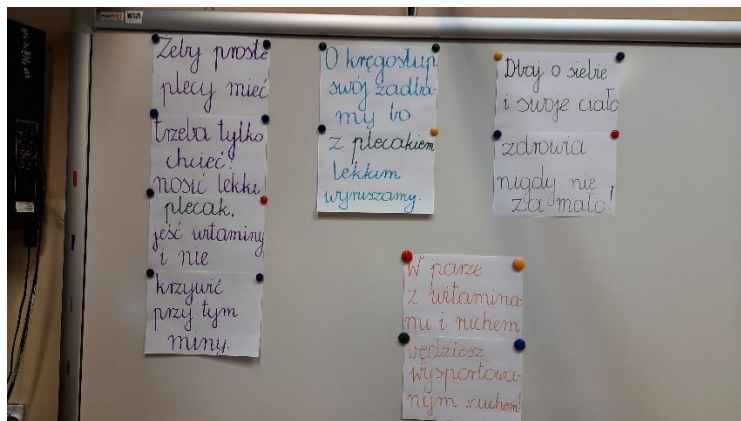 Żeby proste
plecy mieć
trzeba tylko
chcieć!
nosić lekki
plecak,
jeść witaminy
i nie
krzywić
przy tym
miny.
O kręgosłup
swój zadba-
my bo
z plecakiem
lekkim
wyruszamy.
Dbaj o siebie
i swoje ciało
zdrowia
nigdy nie
za mało!
W parze
z witamina-
mi i ruchem
będziesz
wysportowa-
nym zuchem!